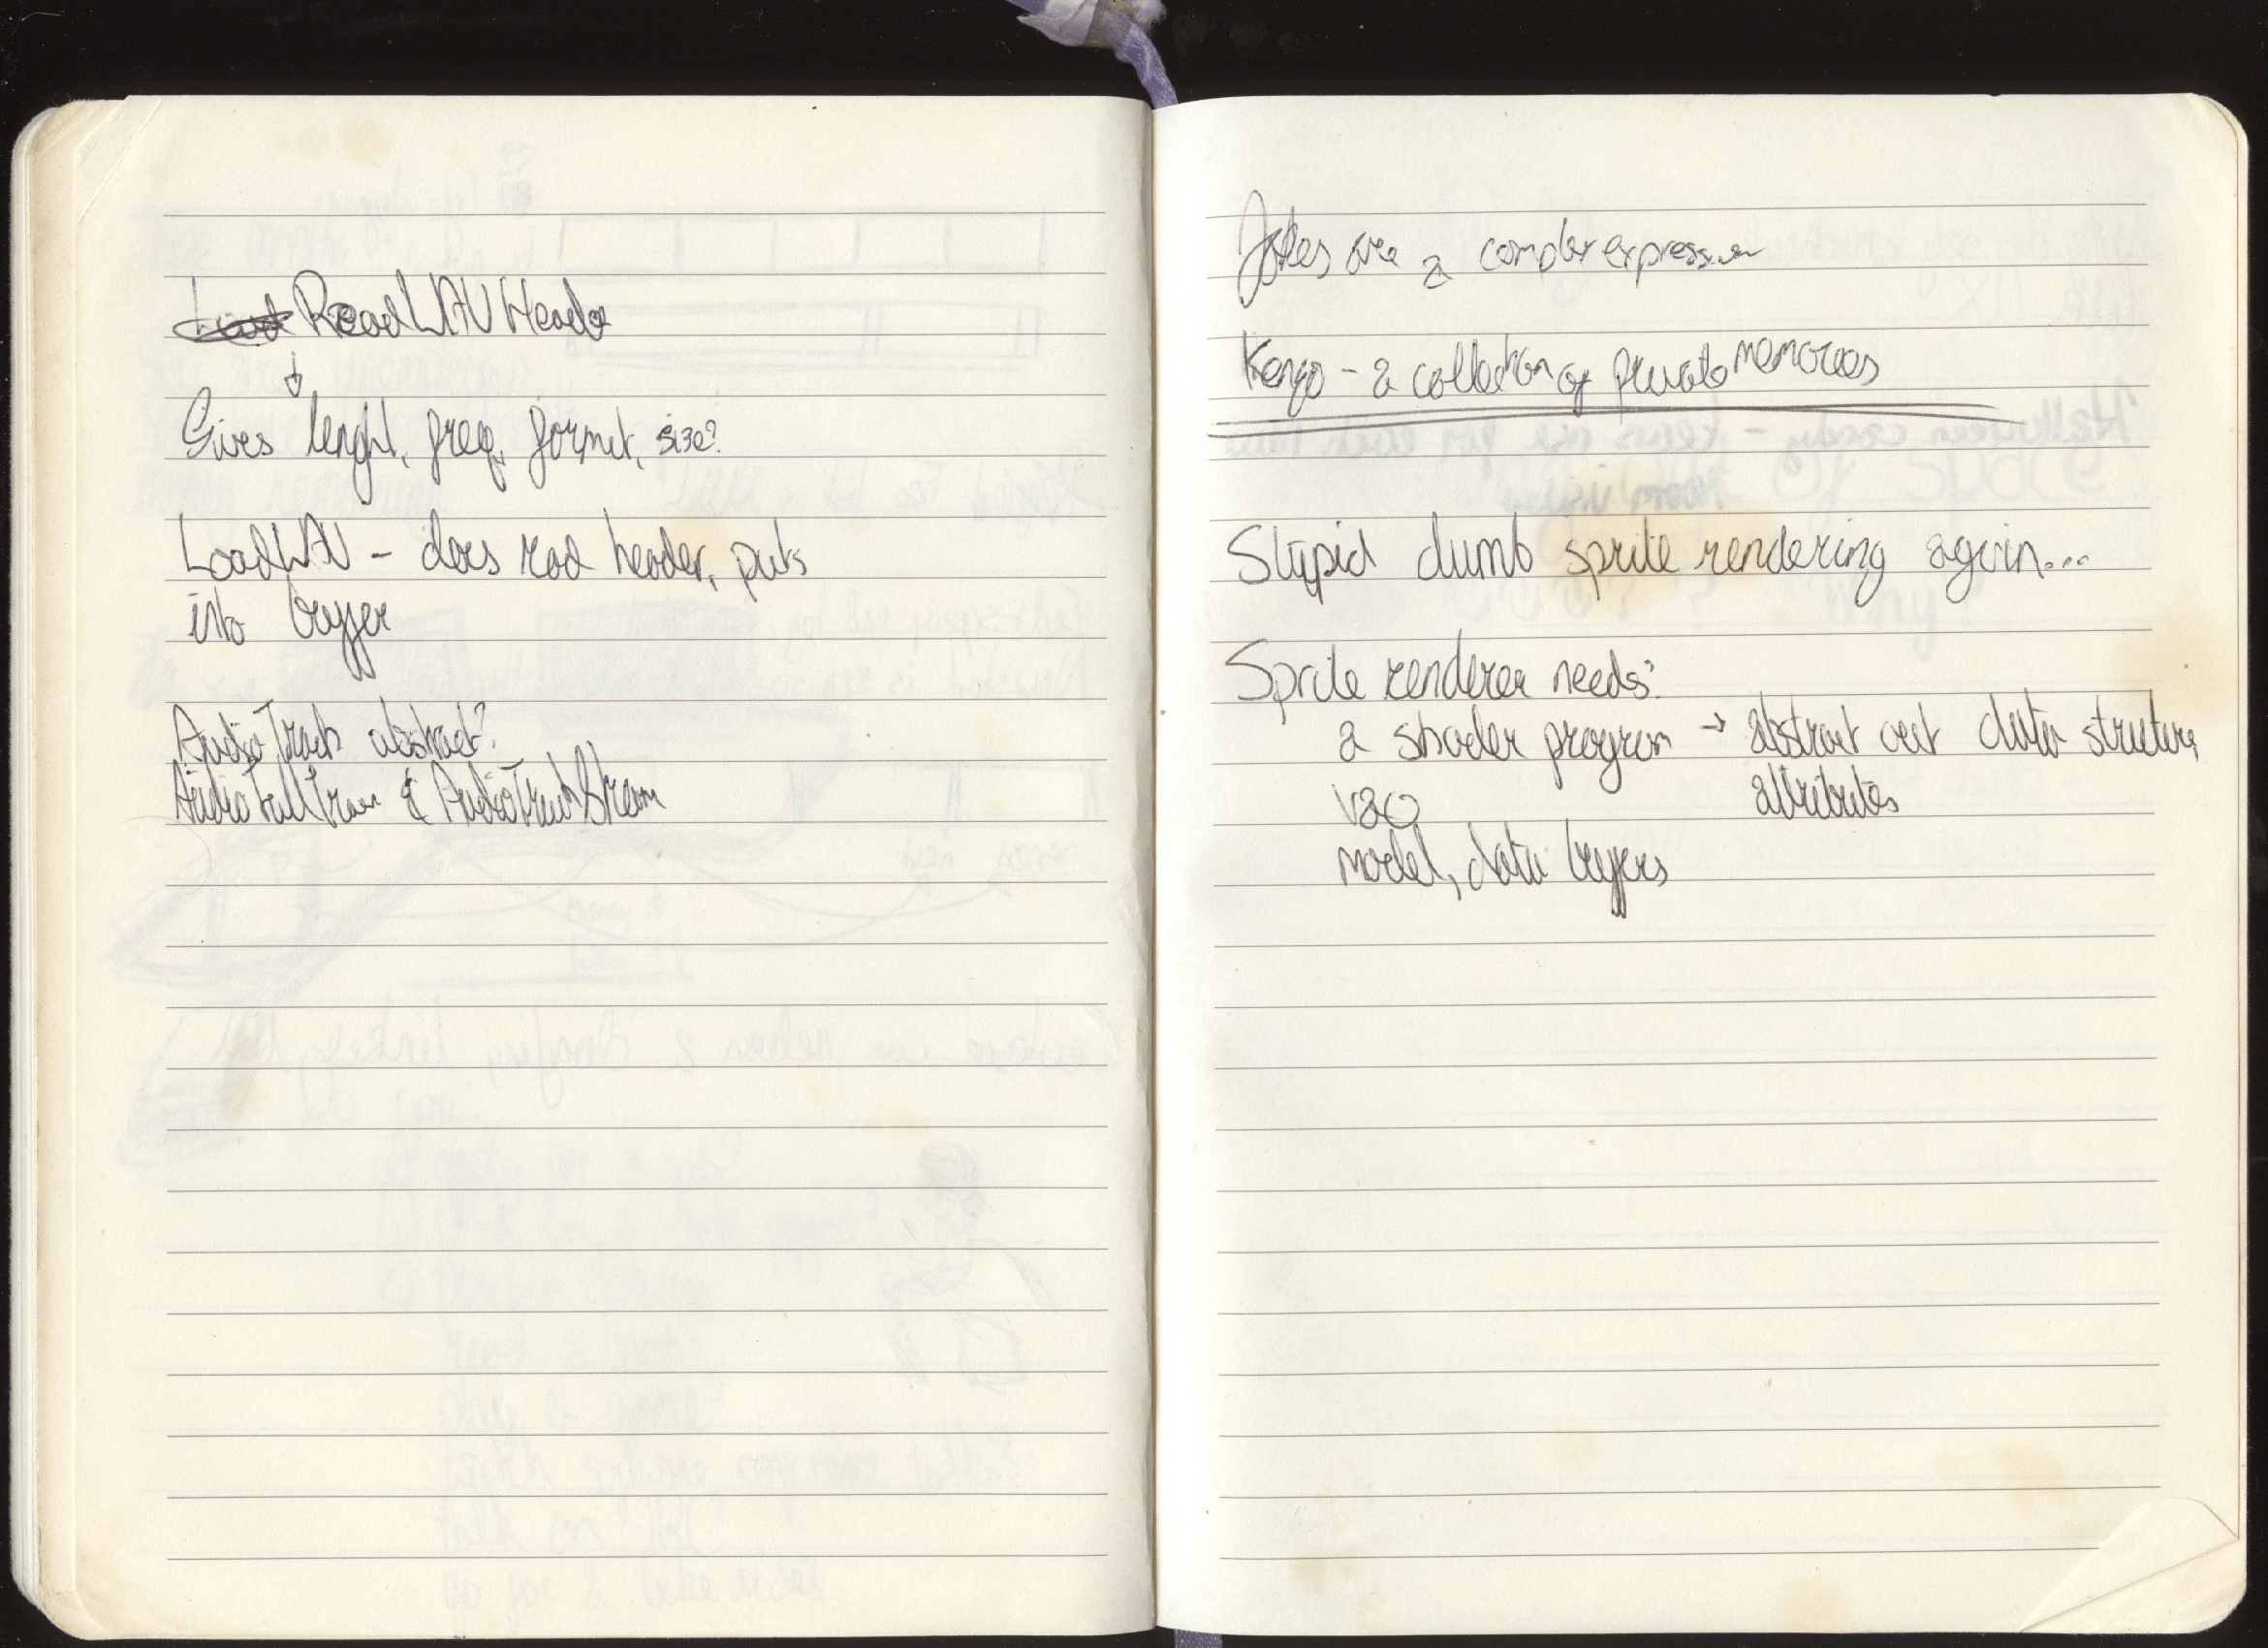 Load ReadWAVHeader
↓
Gives lenght, freq, format, size?
LoadWAV - does read header, puts
into buffer
AudioTrack abstract?
AudioFullTrack & AudioTrackStream
Jokes are a complex expression
Kenzo - a collection of private memories
Stupid dumb sprite rendering again...
Sprite renderer needs:
a shader program → abstract out data structure,
vao attributes
model, data buffers